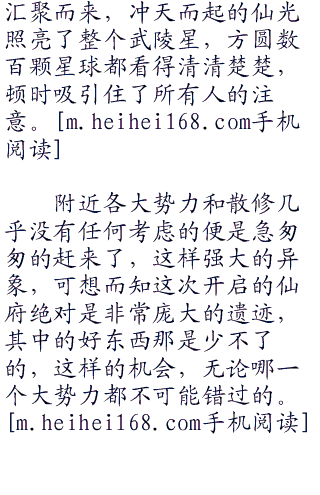 汇聚而来，冲天而起的仙光
照亮了整个武陵星，方圆数
百颗星球都看得清清楚楚，
顿时吸引住了所有人的注
意。[m.heihei168.com手机
阅读]
　　附近各大势力和散修几
乎没有任何考虑的便是急匆
匆的赶来了，这样强大的异
象，可想而知这次开启的仙
府绝对是非常庞大的遗迹，
其中的好东西那是少不了
的，这样的机会，无论哪一
个大势力都不可能错过的。
[m.heihei168.com手机阅读]